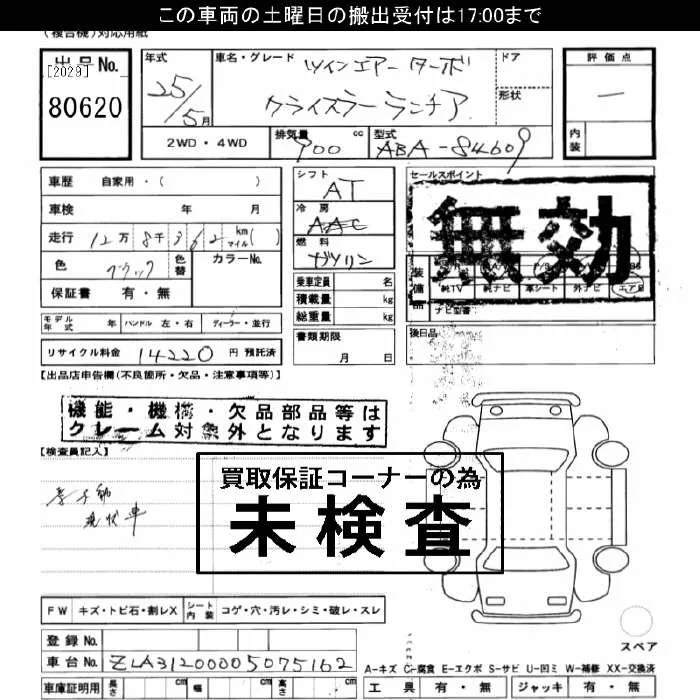 この車両の土曜日の搬出受付は17:00まで
(複合機)対応用紙
出品No.
[2029]
80620
年式
25/5月
車名・グレード
ツインエアー ターボ
クライスラー ランチア
ドア
形状
評価点
内装
2WD・4WD
排気量
900
cc
型式
ABA-84609
車歴 自家用・( )
車検 年 月
走行 12万8千362 km マイル( )
色 ブラック
色替
カラーNo.
保証書 有・無
シフト
AT
冷房
AAC
燃料
ガソリン
乗車定員 名
積載量 kg
総重量 kg
セールスポイント
無効
装備品
純TV 純ナビ 革シート 外ナビ エアB
ナビ型番
モデル年式 年 ハンドル 左・右 ディーラー・並行
書類期限
月 日
後日品
リサイクル料金 14220 円 預託済
【出品店申告欄(不良箇所・欠品・注意事項等)】
機能・機構・欠品部品等は
クレーム対象外となります
【検査員記入】
現状車
買取保証コーナーの為
未検査
FW キズ・トビ石・割レX シート内装 コゲ・穴・汚レ・シミ・破レ・スレ
スペア
登録No.
車台No. ZLA31200005075162
A-キズ C-腐食 E-エクボ S-サビ U-凹ミ W-補修 XX-交換済
車庫証明用 長さ cm 幅 cm 高さ cm
工具 有・無 ジャッキ 有・無